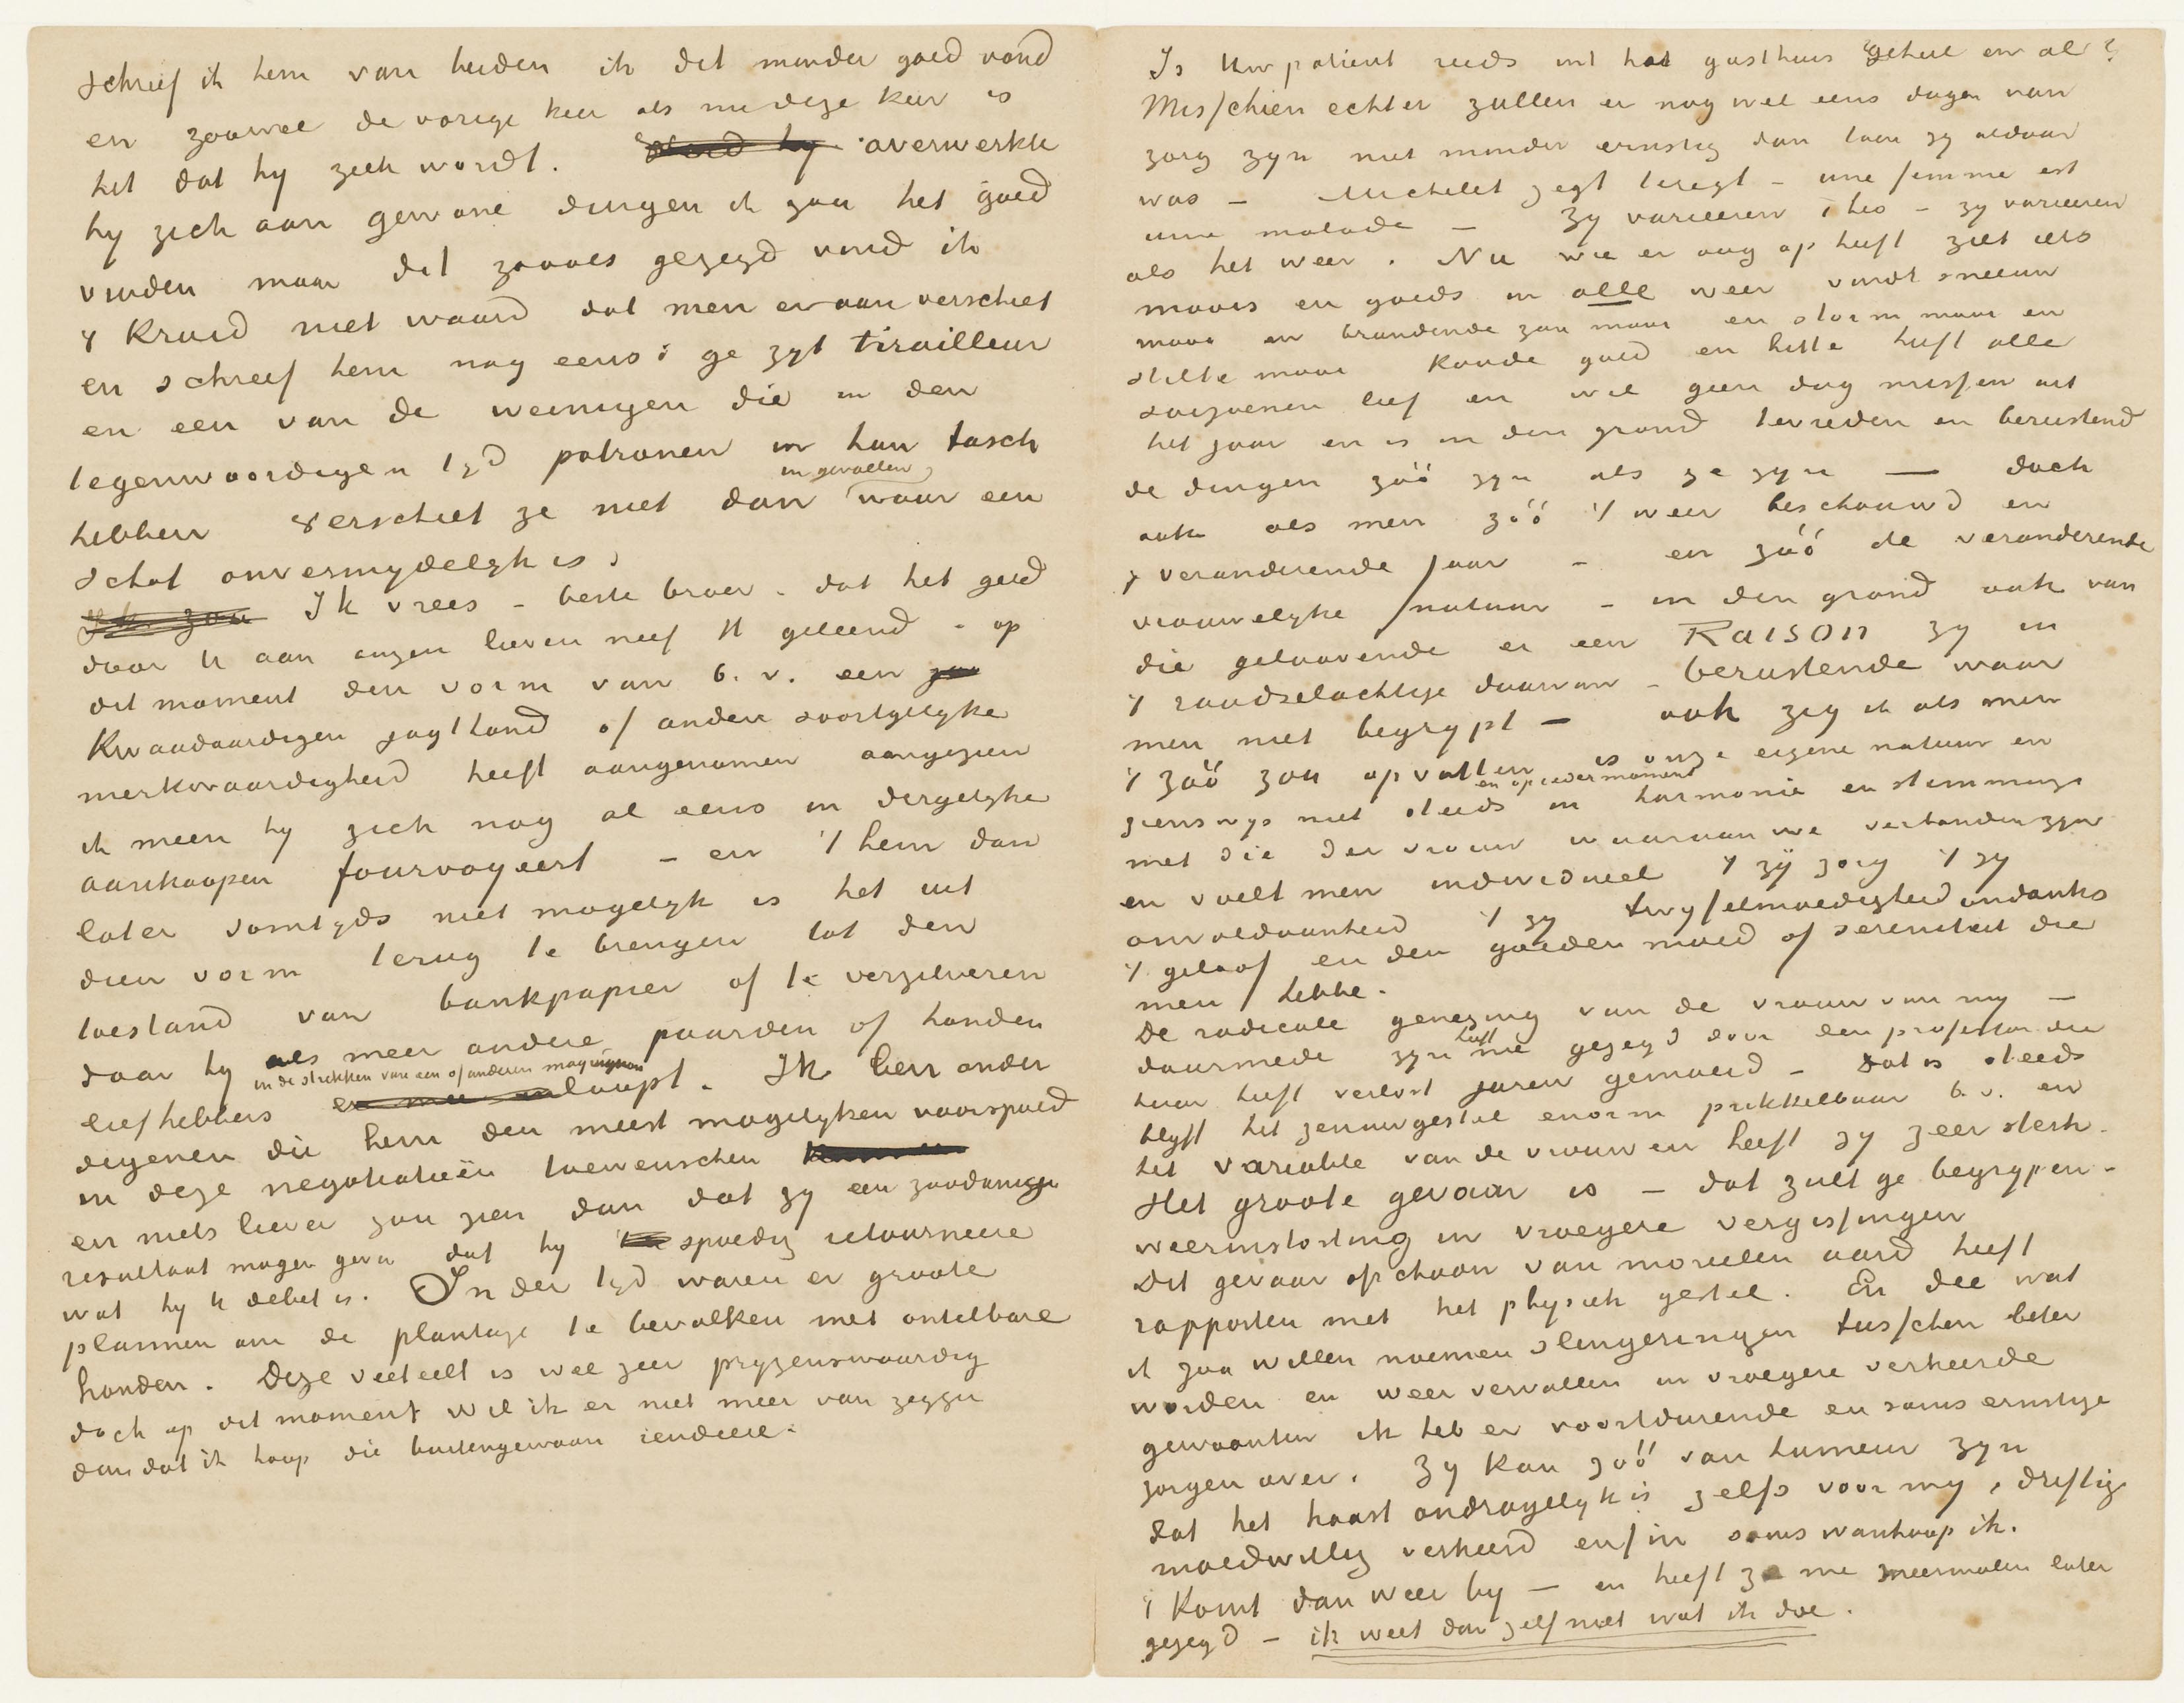 schreef ik hem van beiden ik dit minder goed vond
en zoowel de vorige keer als nu deze keer is
het dat hij ziek wordt. overwerkte
hij zich aan gewone dingen ik zou het goed
vinden maar dit zooals gezegd vind ik
't kruid niet waard dat men er aan verschiet
en schreef hem nog eens: ge zijt tirailleur
en een van de weinigen die in den
tegenwoordigen tijd patronen in hun tasch
hebben verschiet ze niet dan in gevallen waar een
schot onvermijdelijk is.
Ik zou Ik vrees – beste broer – dat het geld
door U aan onzen lieven neef H geleend – op
dit moment den vorm van b.v. een
kwaadaardigen jagthond of andere soortgelijke
merkwaardigheid heeft aangenomen aangezien
ik meen hij zich nog al eens in dergelijke
aankoopen fourvoyeert – en 't hem dan
later somtijds niet mogelijk is het uit
dien vorm terug te brengen tot den
toestand van bankpapier of te verzilveren
daar hij als meer andere paarden of honden
liefhebbers in de strikken van een of anderen maquignon loopt. Ik ben onder
degenen die hem den meest mogelijken voorspoed
in deze negotiatieën toewenschen
en niets liever zou zien dan dat zij een zoodanige
resultaat mogen geven dat hij spoedig retourneere
wat hij U debet is. In der tijd waren er groote
plannen om de plantage te bevolken met ontelbare
honden. Deze veeteelt is wel zeer prijzenswaardig
doch op dit moment wil ik er niet meer van zeggen
dan dat ik hoop die buitengewoon rendeere.
Is Uw patient reeds uit het gasthuis geheel en al?
Misschien echter zullen er nog wel eens dagen van
zorg zijn niet minder ernstig dan toen zij aldaar
was – Michelet zegt teregt – une femme est
une malade – Zij varieeren Theo – zij varieeren
als het weer. Nu wie er oog op heeft ziet iets
moois en goeds in alle weer vindt sneeuw
mooi en brandende zon mooi en storm mooi en
stilte mooi koude goed en hitte heeft alle
saizoenen lief en wil geen dag missen uit
het jaar en is in den grond tevreden en berustend
de dingen zóó zijn als ze zijn — doch
ook als men zóó 't weer beschouwd en
't veranderende jaar – en zóó de veranderende
vrouwelijke natuur – in den grond ook van
die geloovende er een Raison zij in
't raadselachtige daarvan – berustende waar
men niet begrijpt – ook zeg ik als men
't zóó zou opvatten is onze eigene natuur en
zienswijs niet steeds en op ieder moment in harmonie en stemming
met die der vrouw waaraan we verbonden zijn
en voelt men individueel 't zij zorg 't zij
onvoldaanheid 't zij twijfelmoedigheid ondanks
't geloof en den goeden moed of sereniteit die
men hebbe.
De radicale genezing van de vrouw van mij —
daarmede zijn heeft me gezegd door den professor die
haar heeft verlost jaren gemoeid – Dat is steeds
blijft het zenuwgestel enorm prikkelbaar b.v. en
het variable van de vrouwen heeft zij zeer sterk.
Het groote gevaar is – dat zult ge begrijpen –
weerinstorting in vroegere vergissingen
Dit gevaar ofschoon van moreelen aard heeft
rapporten met het physiek gestel. En die wat
ik zou willen noemen slingeringen tusschen beter
worden en weer vervallen in vroegere verkeerde
gewoonten ik heb er voortdurende en soms ernstige
zorgen over. Zij kan zóó van humeur zijn
dat het haast ondragelijk is zelfs voor mij, driftig
moedwillig verkeerd enfin soms wanhoop ik.
't Komt dan weer bij – en heeft ze me meermalen later
gezegd – ik weet dan zelf niet wat ik doe.